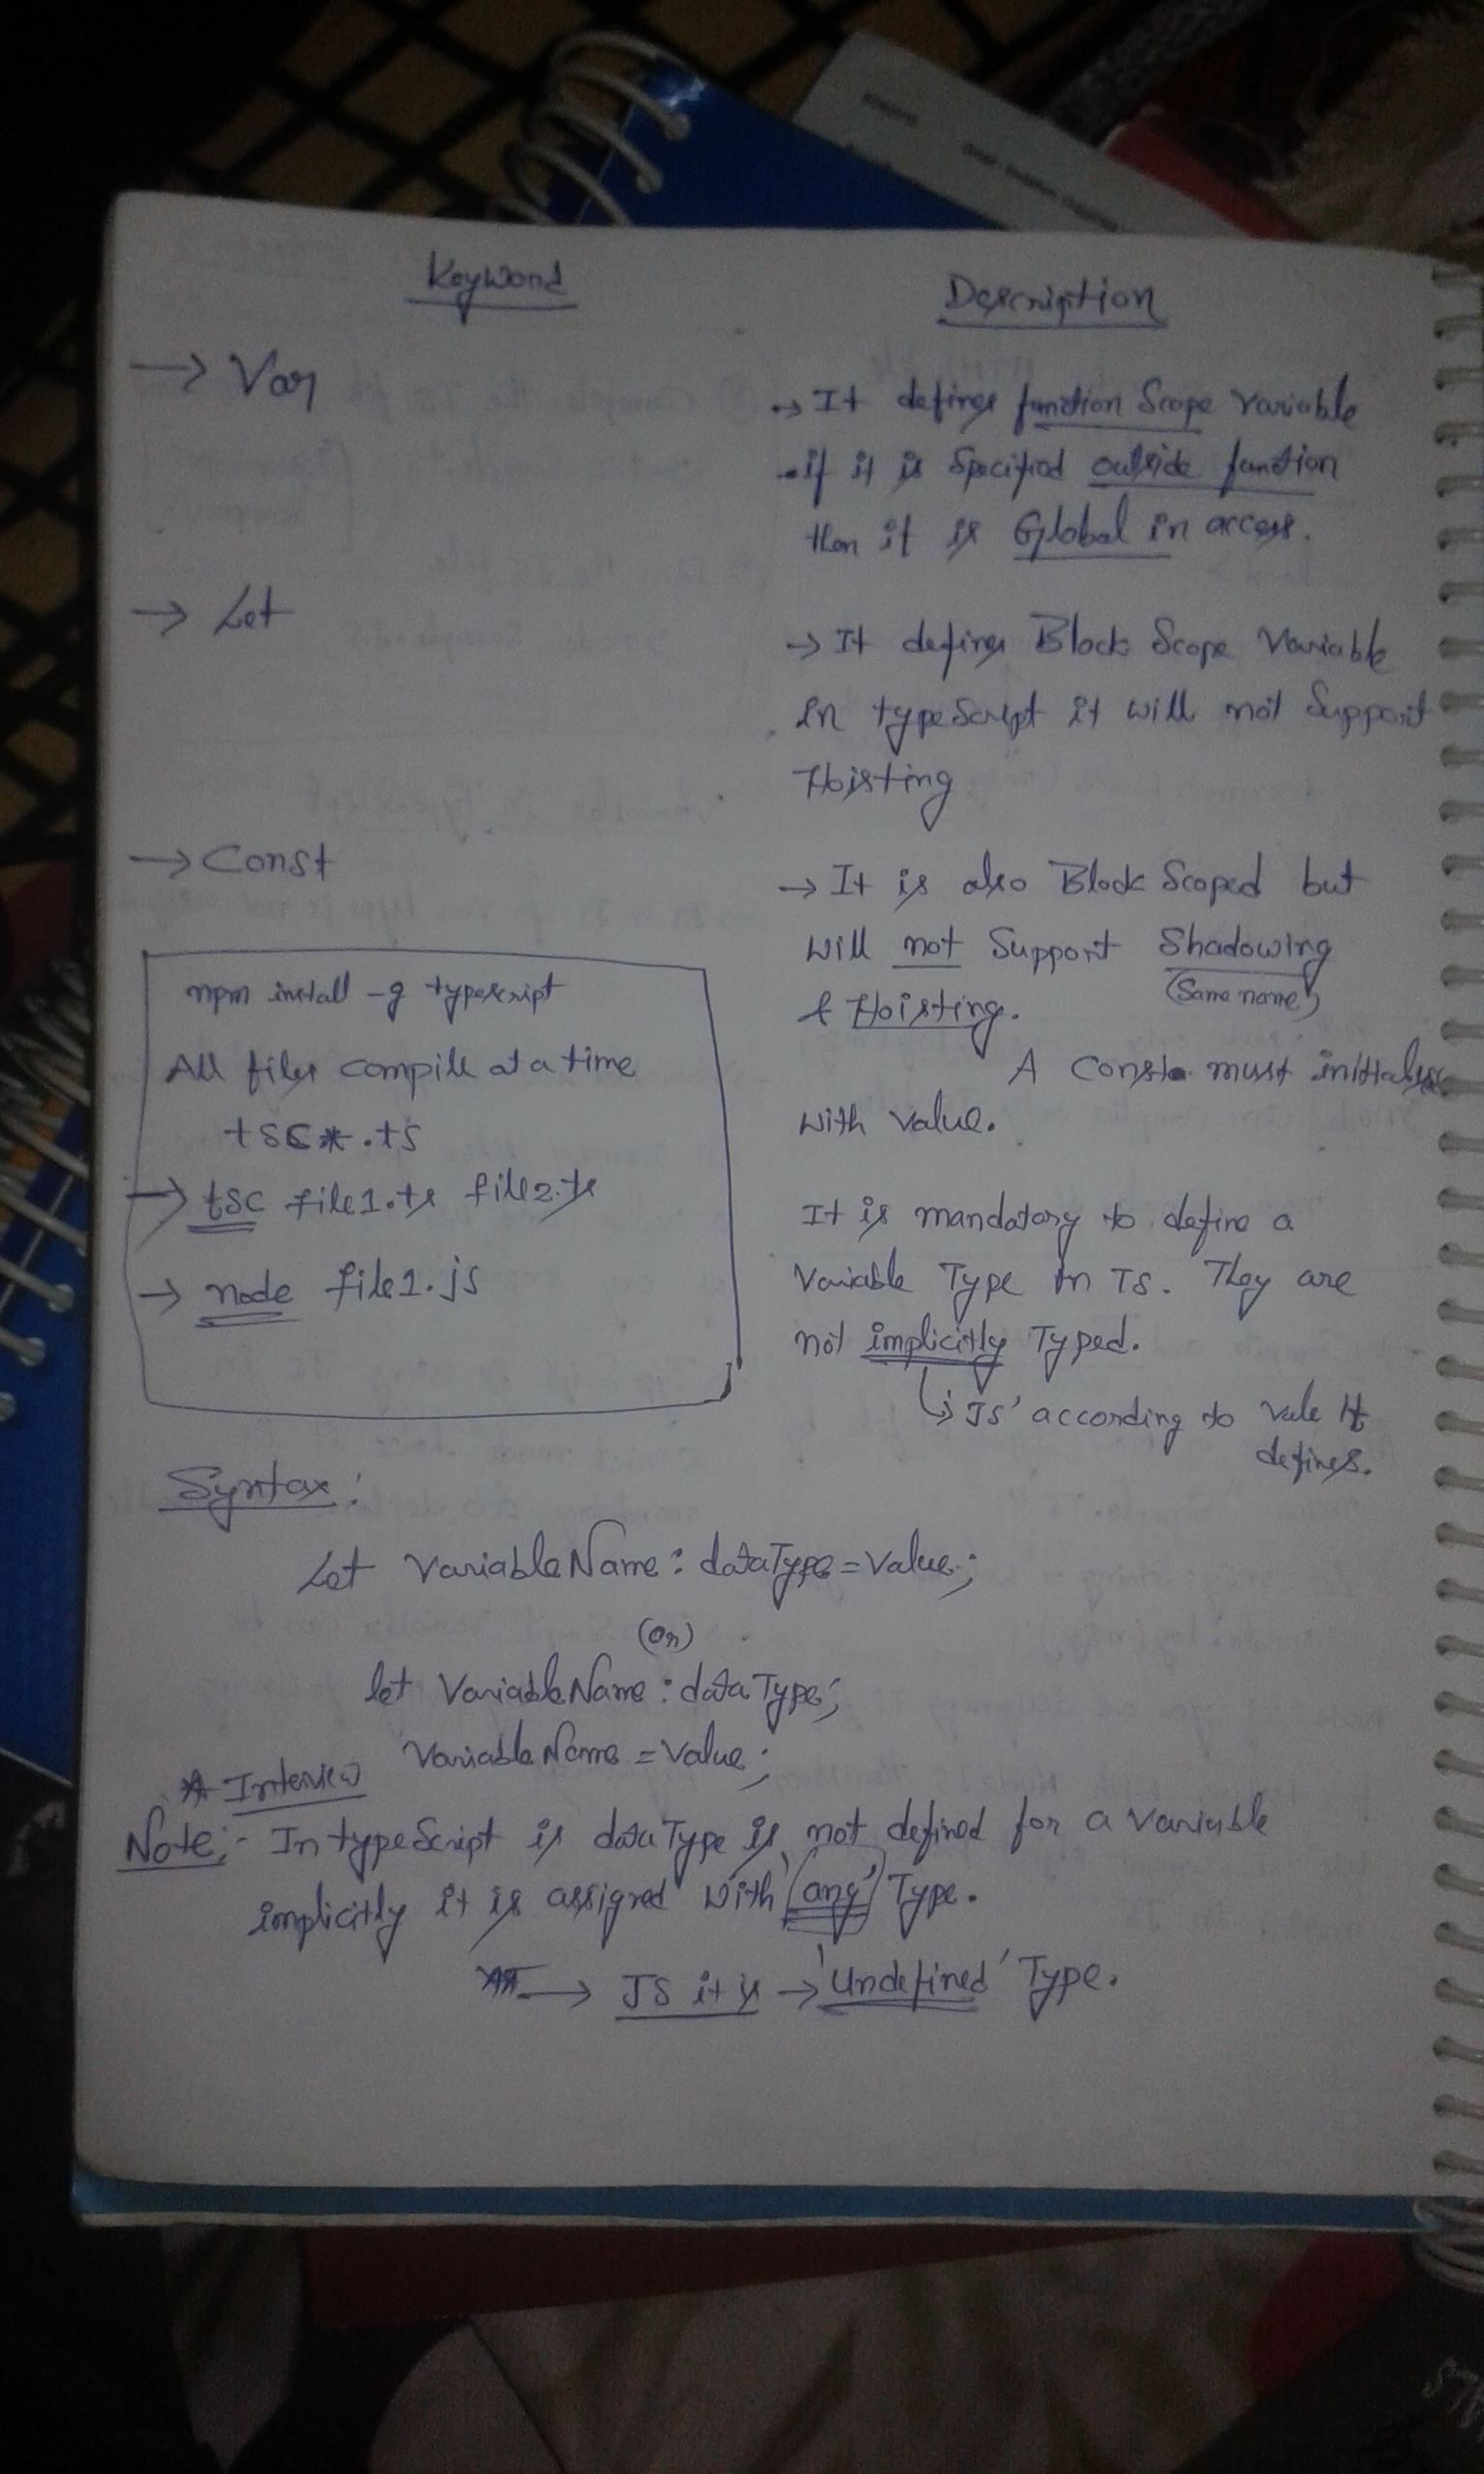 Keyword
Description
→ Var
→ It defines function Scope Variable
if it is Specified outside function
then it is Global in access.
→ Let
→ It defines Block Scope Variable
in typeScript it will not Support
Hoisting
→ Const
→ It is also Block Scoped but
will not Support Shadowing
(Same name)
& Hoisting.
A Const must initialize
with value.
npm install -g typescript
All files compile at a time
tsc *.ts
→ tsc file1.ts file2.ts
→ node file1.js
It is mandatory to define a
Variable Type in TS. They are
not implicitly Typed.
↳ JS' according to vale it
defines.
Syntax:
Let VariableName: dataType = Value;
(or)
let VariableName: dataType;
VariableName = Value;
* Interview
Note:- In typeScript is dataType is not defined for a variable
implicitly it is assigned with 'any' Type.
→ JS it is → 'Undefined' Type.